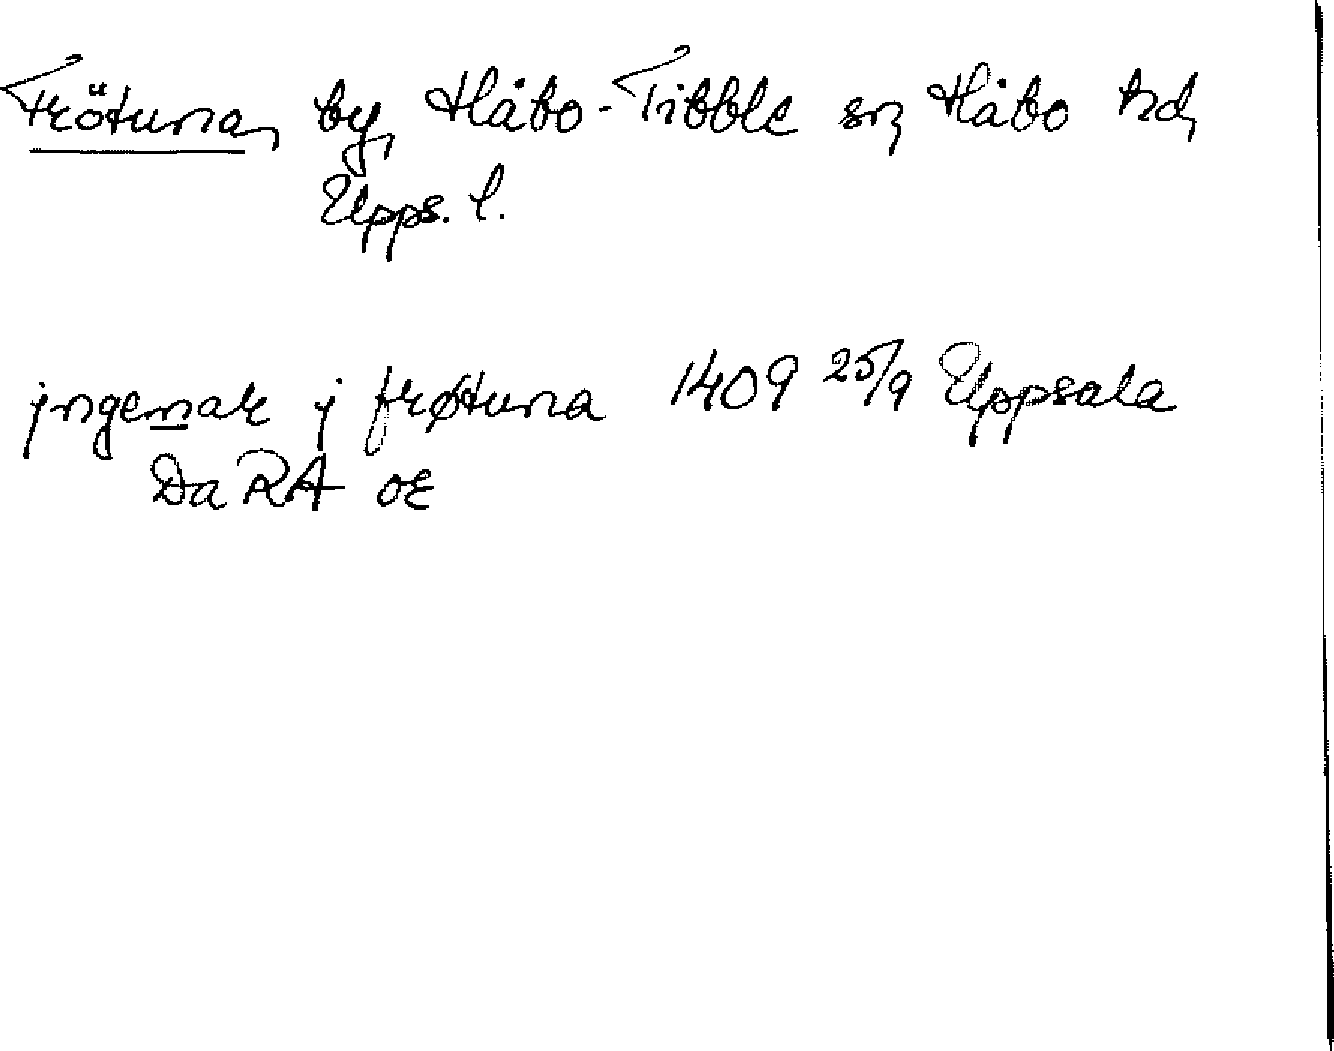 Frötuna, by, Håbo-Tibble sn, Håbo hd,
Upps. l.
jngemar j frøtuna 1409 25/9 Uppsala
DaRA or